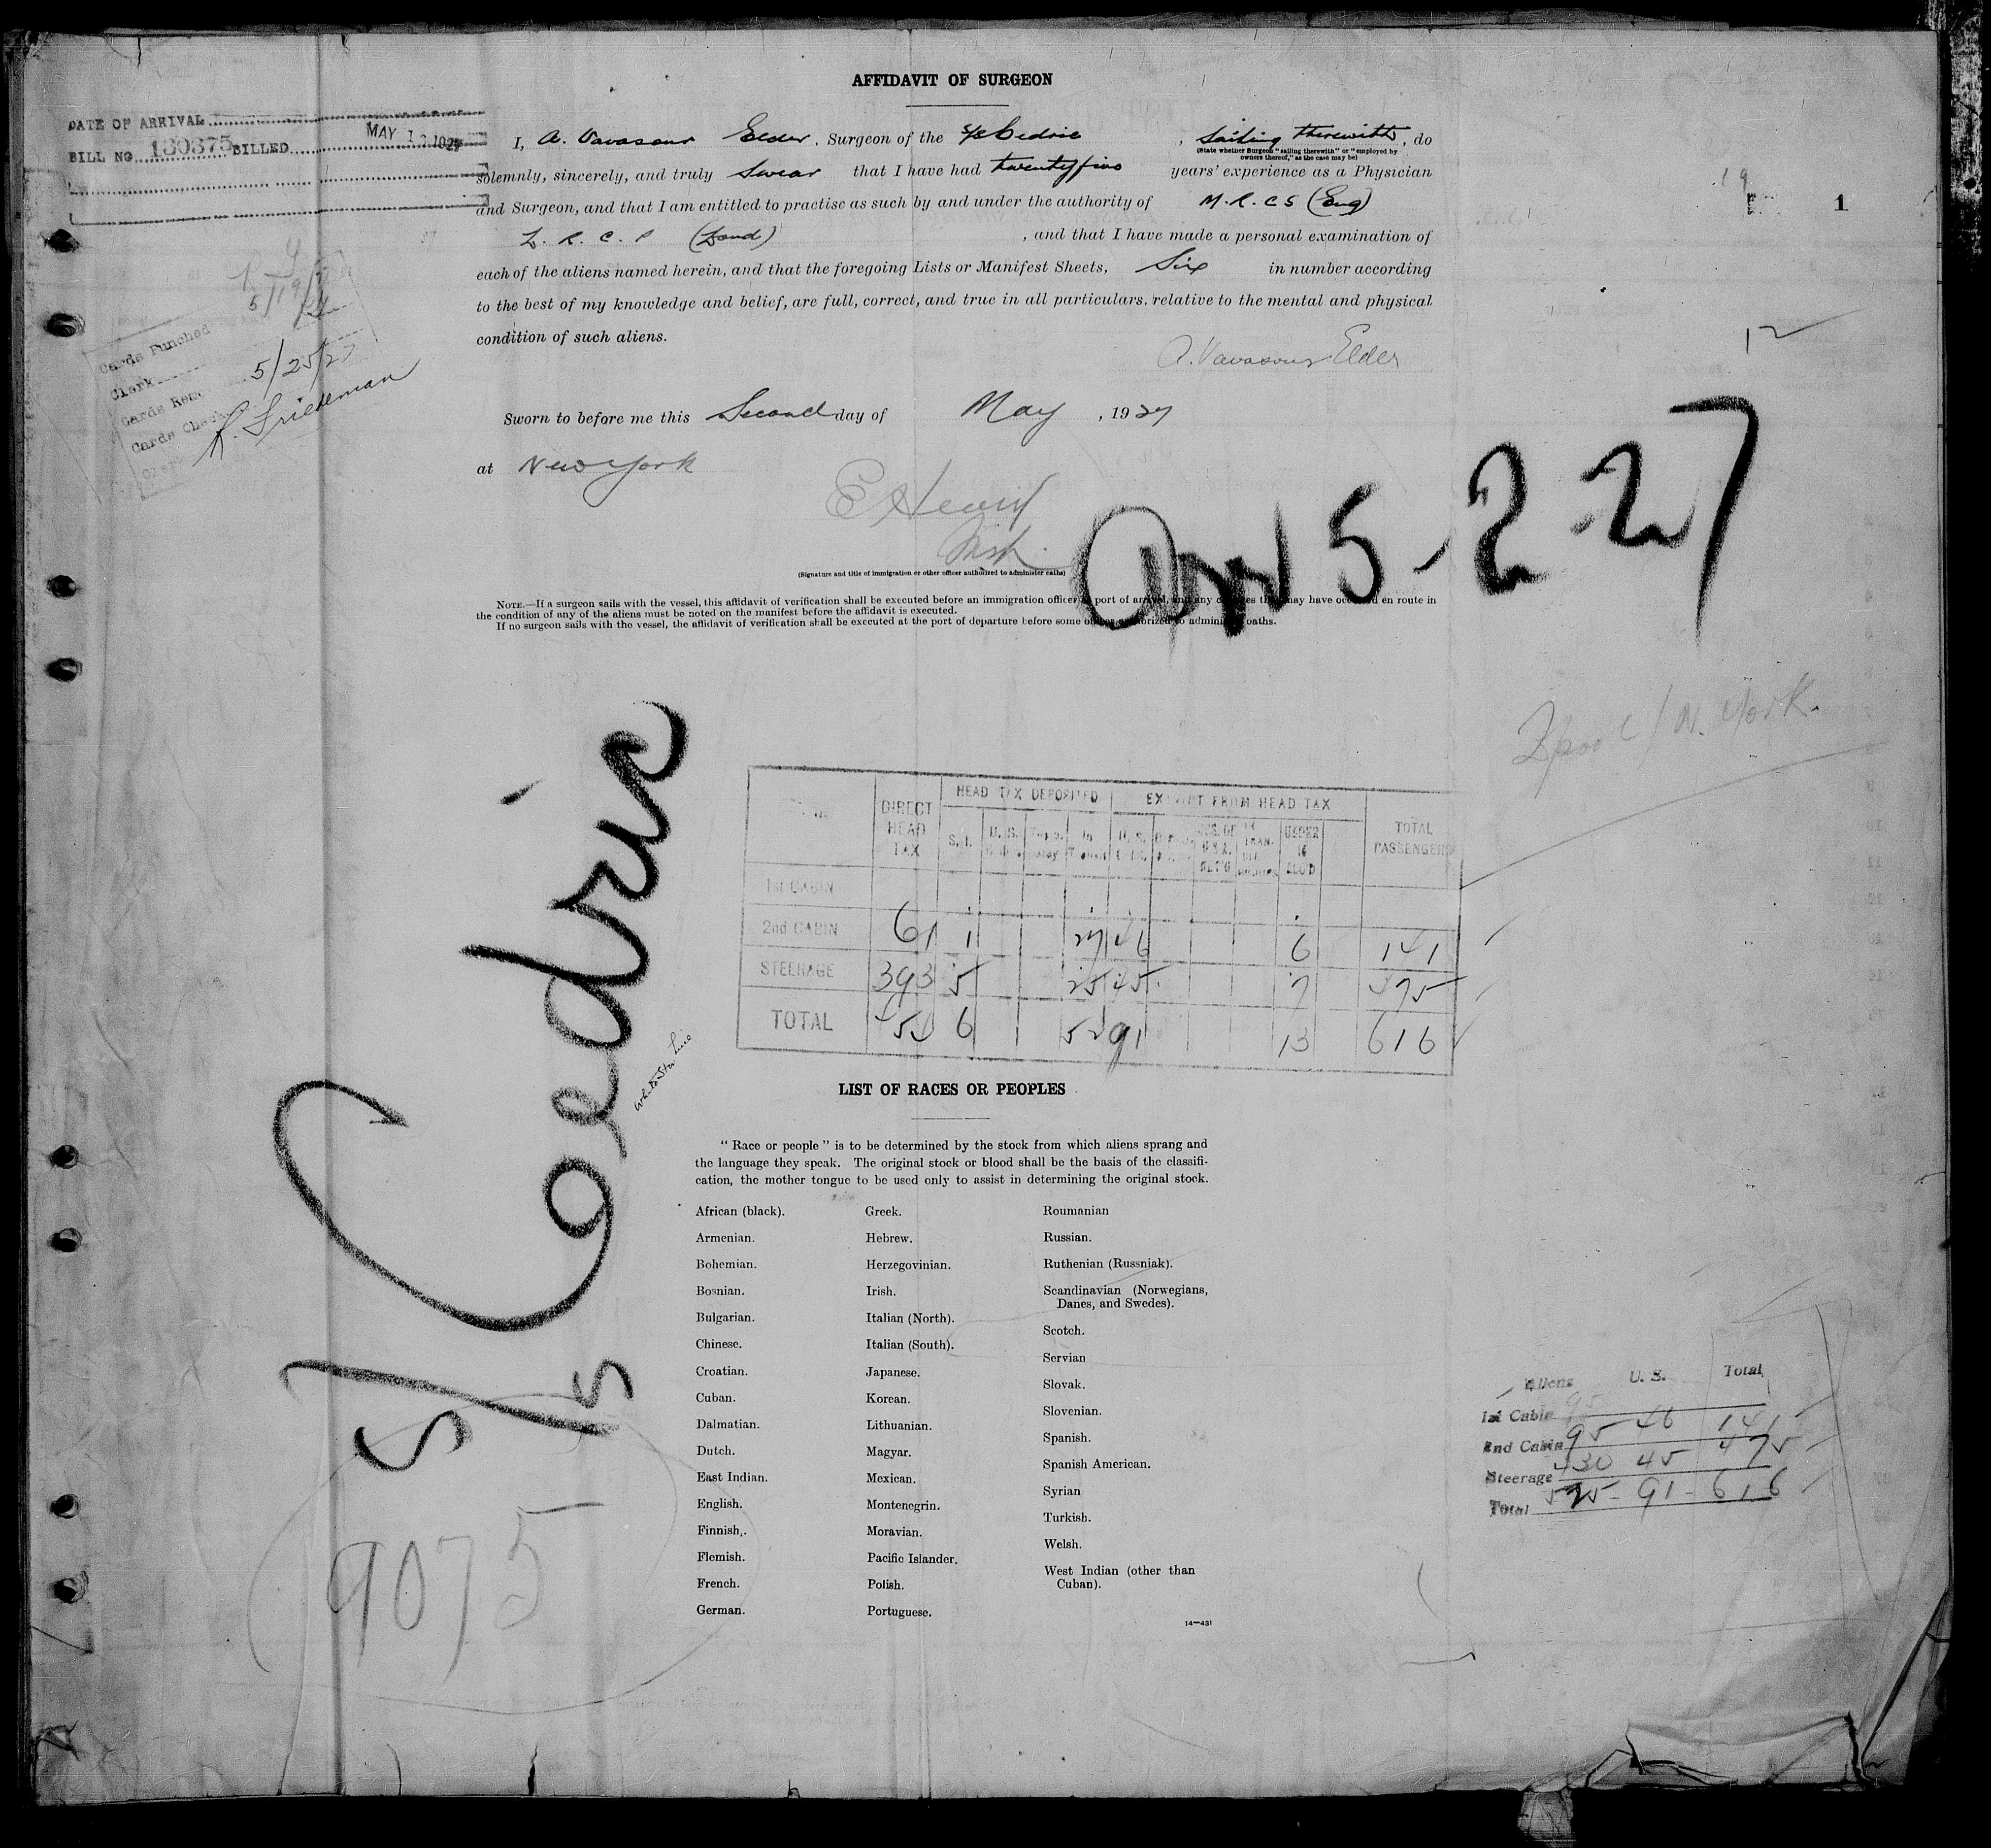 AFFIDAVIT OF SURGEON
DATE OF ARRIVAL
BILL NO. 130375 BILLED MAY 1927
I, A. Vavasour Elder, Surgeon of the S/S Cedric, Sailing therewith, do
(State whether Surgeon "sailing therewith" or "employed by
owners thereof," as the case may be)
solemnly, sincerely, and truly Swear that I have had twenty five years' experience as a Physician
and Surgeon, and that I am entitled to practise as such by and under the authority of M.R.C.S (Eng)
L. R. C. P (Lond), and that I have made a personal examination of
each of the aliens named herein, and that the foregoing Lists or Manifest Sheets, Six in number according
to the best of my knowledge and belief, are full, correct, and true in all particulars, relative to the mental and physical
condition of such aliens.
A. Vavasour Elder
Sworn to before me this Second day of May, 1927
at New York
(Signature and title of immigration or other officer authorized to administer oaths)
NOTE.—If a surgeon sails with the vessel, this affidavit of verification shall be executed before an immigration officer port of arrival, and any changes that may have occurred en route in
the condition of any of the aliens must be noted on the manifest before the affidavit is executed.
If no surgeon sails with the vessel, the affidavit of verification shall be executed at the port of departure before some officer authorized to administer oaths.
1
12
Arr 5-2-27
L'pool / N. York.
Cards Punched
5/19/27
Clerk
5/25/27
R. Friedman
S/S Cedric
White Star Line
9075
DIRECT HEAD TAX
HEAD TAX DEPOSITED
EXEMPT FROM HEAD TAX
TOTAL PASSENGERS
S.I.
UNDER 16 ACC'D
1st CABIN
2nd CABIN 61 1 27 46 6 141
STEERAGE 393 5 25 45 7 475
TOTAL 454 6 52 91 13 616
LIST OF RACES OR PEOPLES
"Race or people" is to be determined by the stock from which aliens sprang and
the language they speak. The original stock or blood shall be the basis of the classifi-
cation, the mother tongue to be used only to assist in determining the original stock.
African (black).
Armenian.
Bohemian.
Bosnian.
Bulgarian.
Chinese.
Croatian.
Cuban.
Dalmatian.
Dutch.
East Indian.
English.
Finnish,.
Flemish.
French.
German.
Greek.
Hebrew.
Herzegovinian.
Irish.
Italian (North).
Italian (South).
Japanese.
Korean.
Lithuanian.
Magyar.
Mexican.
Montenegrin.
Moravian.
Pacific Islander.
Polish.
Portuguese.
Roumanian
Russian.
Ruthenian (Russniak).
Scandinavian (Norwegians,
Danes, and Swedes).
Scotch.
Servian
Slovak.
Slovenian.
Spanish.
Spanish American.
Syrian
Turkish.
Welsh.
West Indian (other than
Cuban).
14—431
Aliens U. S. Total
1st Cabin
2nd Cabin 95 46 141
Steerage 430 45 475
Total 525 - 91 - 616